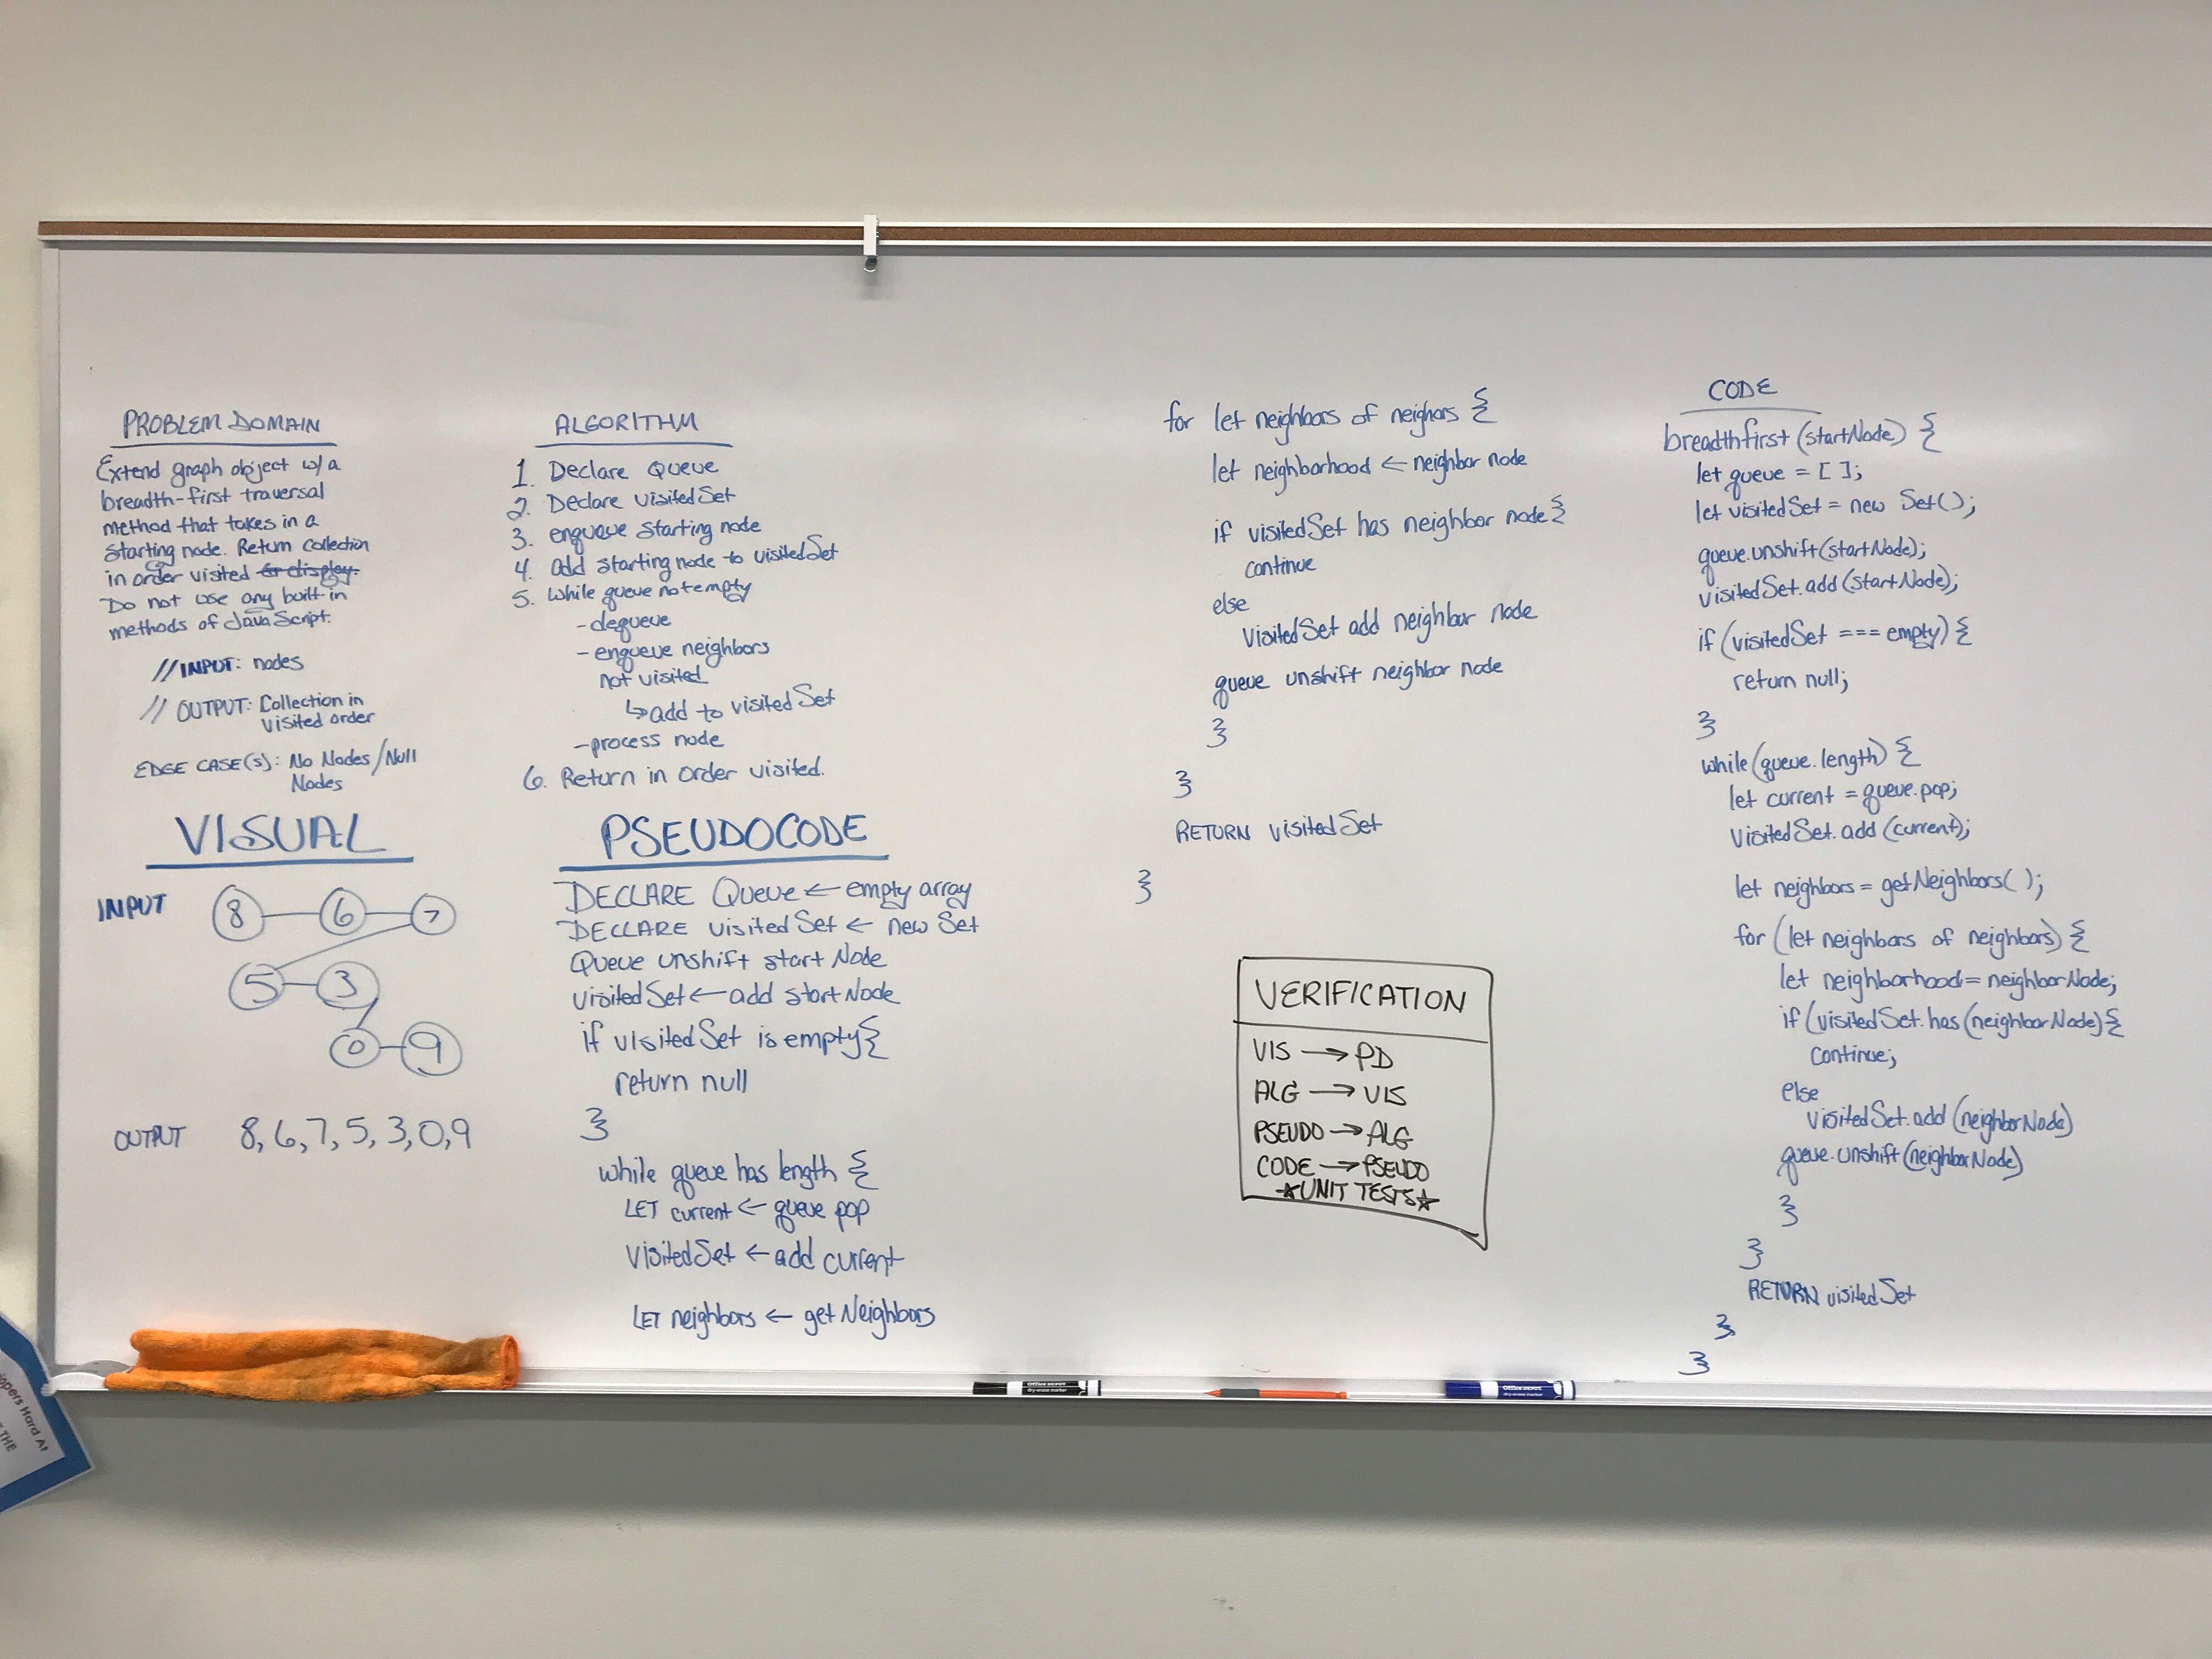 PROBLEM DOMAIN
Extend graph object w/a
breadth-first traversal
method that takes in a
starting node. Return collection
in order visited or display.
Do not use any built-in
methods of JavaScript.
//INPUT: nodes
// OUTPUT: Collection in
visited order
EDGE CASE(S): No Nodes/Null
Nodes
VISUAL
INPUT
8 6 7
5 3
0 9
OUTPUT 8, 6, 7, 5, 3, 0, 9
ALGORITHM
1. Declare Queue
2. Declare visitedSet
3. enqueue starting node
4. add starting node to visitedSet
5. While queue not empty
- dequeue
- enqueue neighbors
not visited
↳ add to visitedSet
- process node
6. Return in order visited.
PSEUDOCODE
DECLARE Queue ← empty array
DECLARE visitedSet ← new Set
Queue unshift start Node
visitedSet ← add start Node
if visitedSet is empty {
return null
}
while queue has length {
LET current ← queue pop
visitedSet ← add current
LET neighbors ← getNeighbors
for let neighbors of neighors {
let neighborhood ← neighbor node
if visitedSet has neighbor node {
continue
else
visitedSet add neighbor node
queue unshift neighbor node
}
}
RETURN visitedSet
}
VERIFICATION
VIS → PD
ALG → VIS
PSEUDO → ALG
CODE → PSEUDO
☆UNIT TESTS☆
CODE
breadthfirst (startNode) {
let queue = [ ];
let visitedSet = new Set();
queue.unshift(startNode);
visitedSet.add(startNode);
if (visitedSet === empty) {
return null;
}
while (queue.length) {
let current = queue.pop;
visitedSet.add(current);
let neighbors = getNeighbors( );
for (let neighbors of neighbors) {
let neighborhood = neighborNode;
if (visitedSet.has(neighborNode) {
continue;
else
visitedSet.add (neighborNode)
queue.unshift(neighborNode)
}
}
RETURN visitedSet
}
}
Office DEPOT
dry-erase marker
Office DEPOT
dry-erase marker
opers Hard At
THE